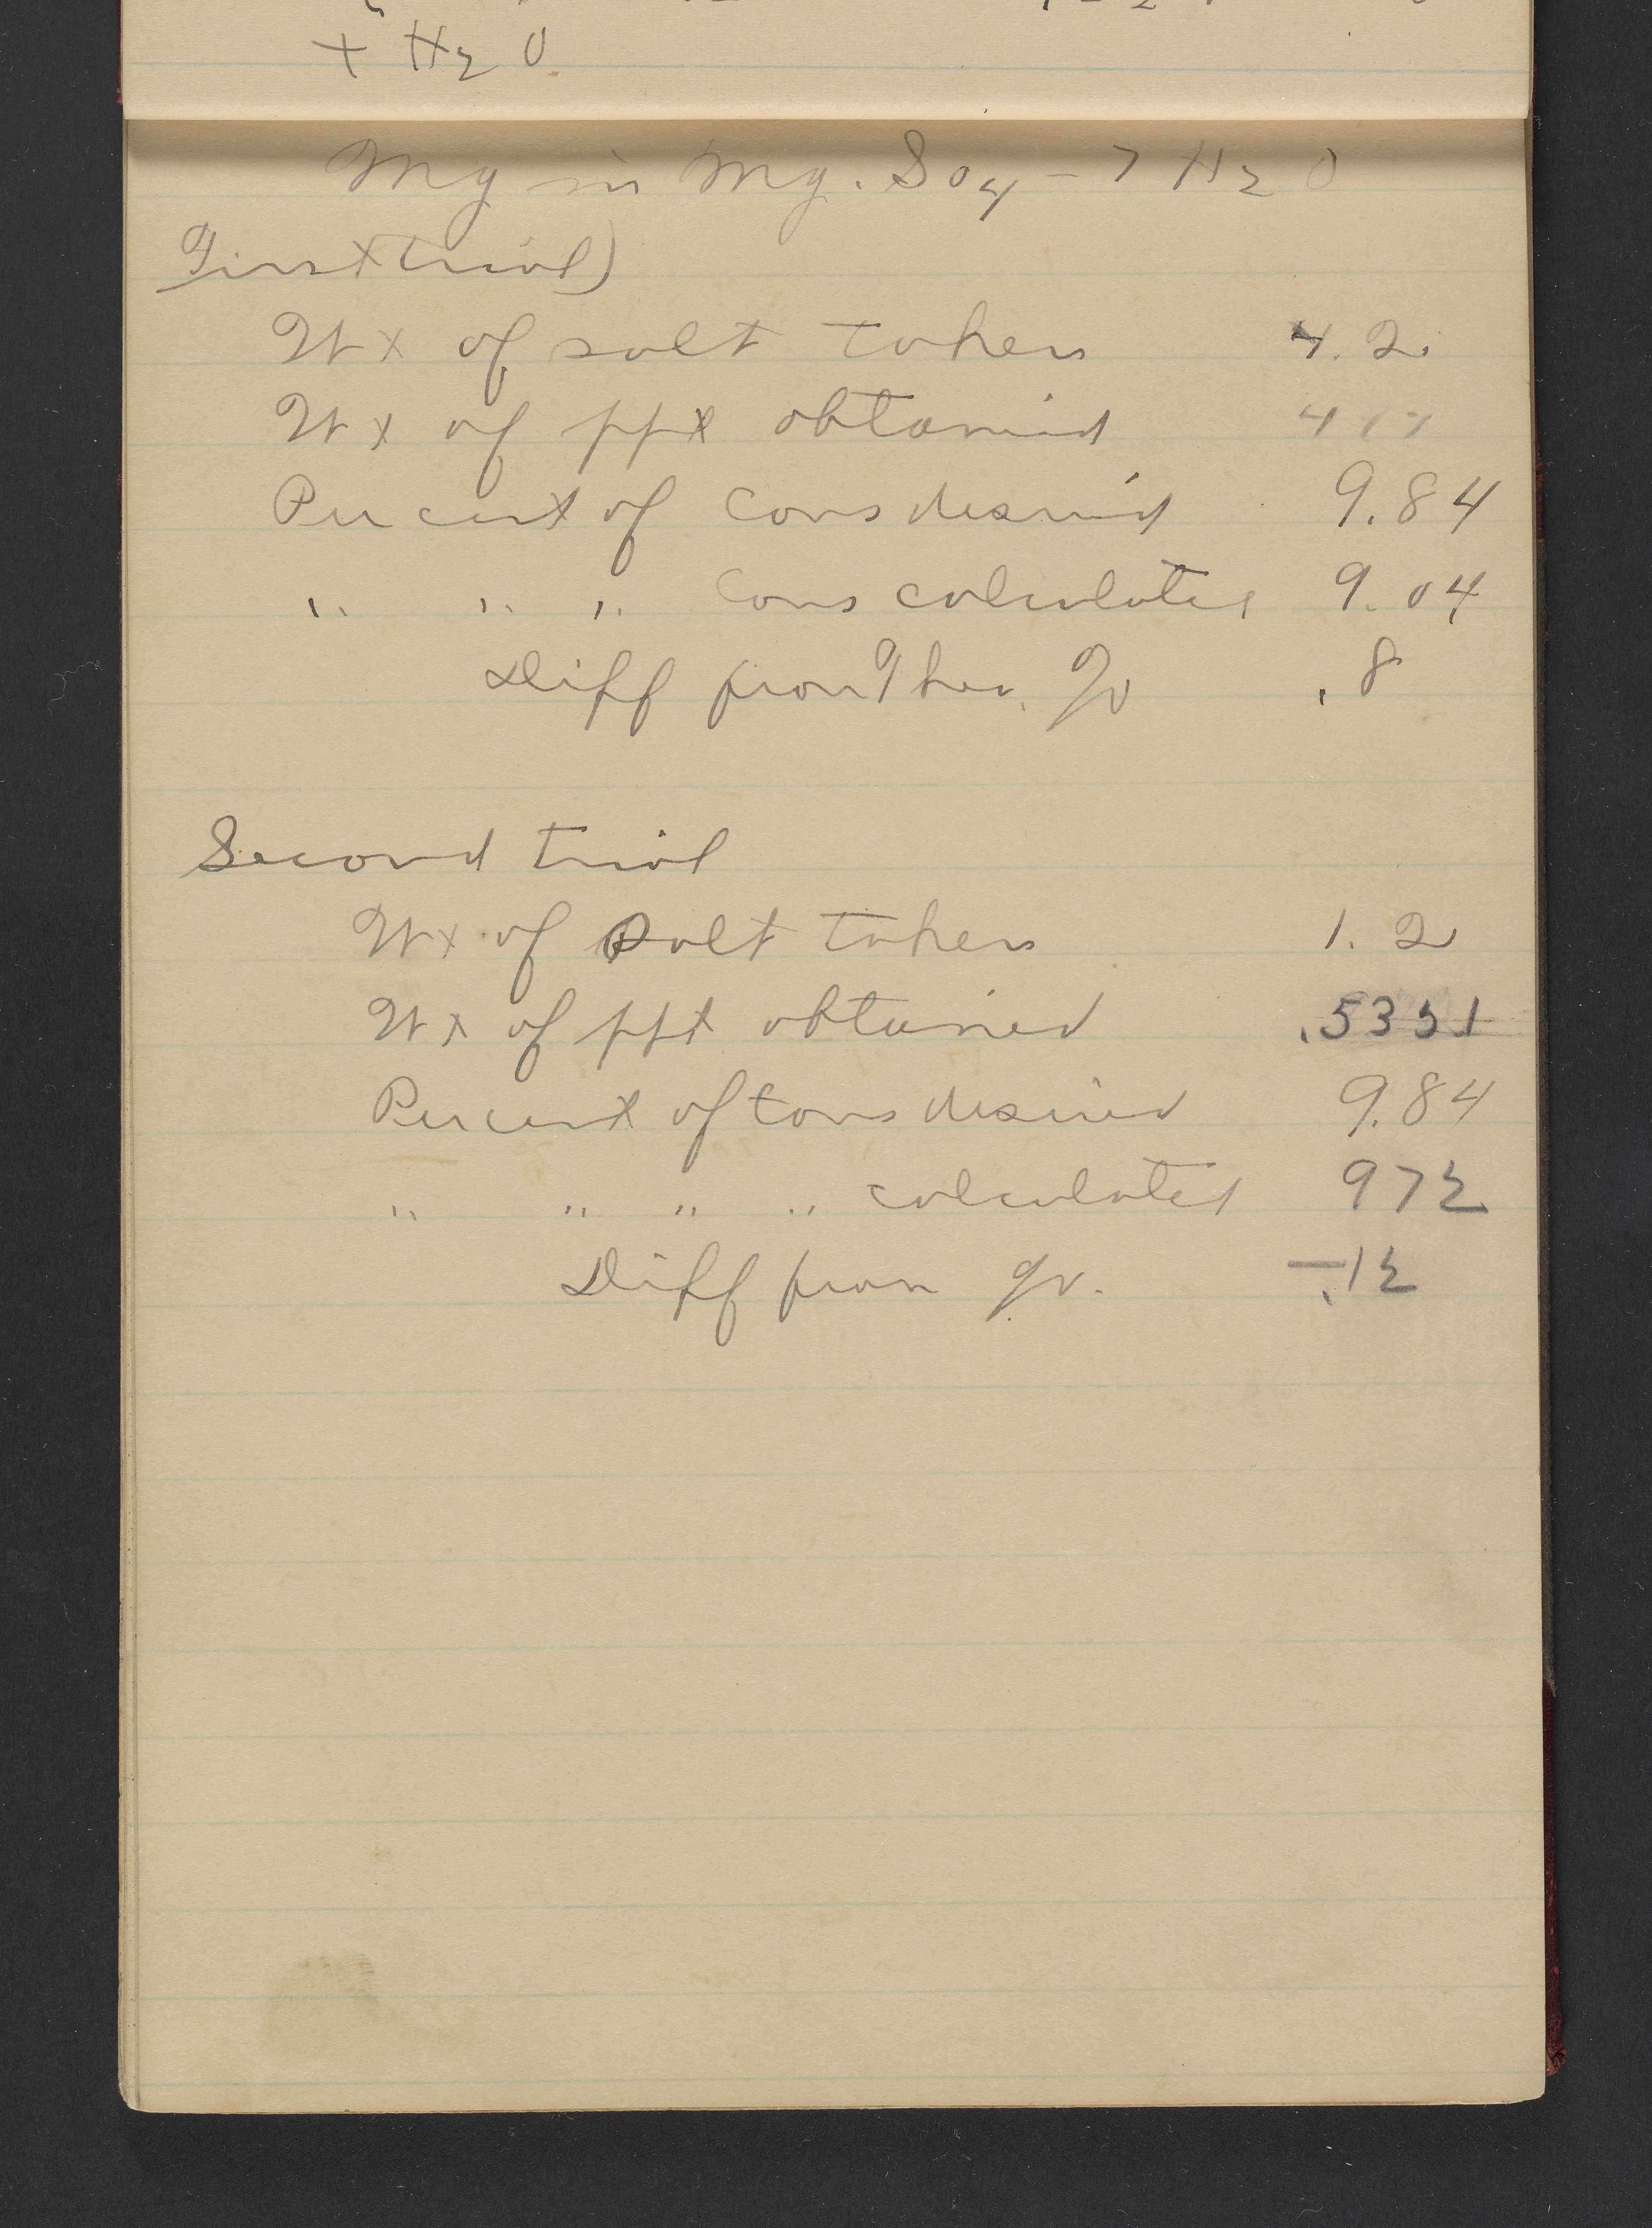 + H2 O
Mg in Mg. So4 - 7 H2 O
First trial)
Wt of salt taken 4.2
Wt of ppt obtained
Per cent of Cons desired 9.84
" " " Cons calculated 9.04
Diff from Theo. % .8
Second trial
Wt of Salt taken 1.2
Wt of ppt obtained .5351
Percent of Cons desired 9.84
" " " " calculated 972
Diff from %. - .12